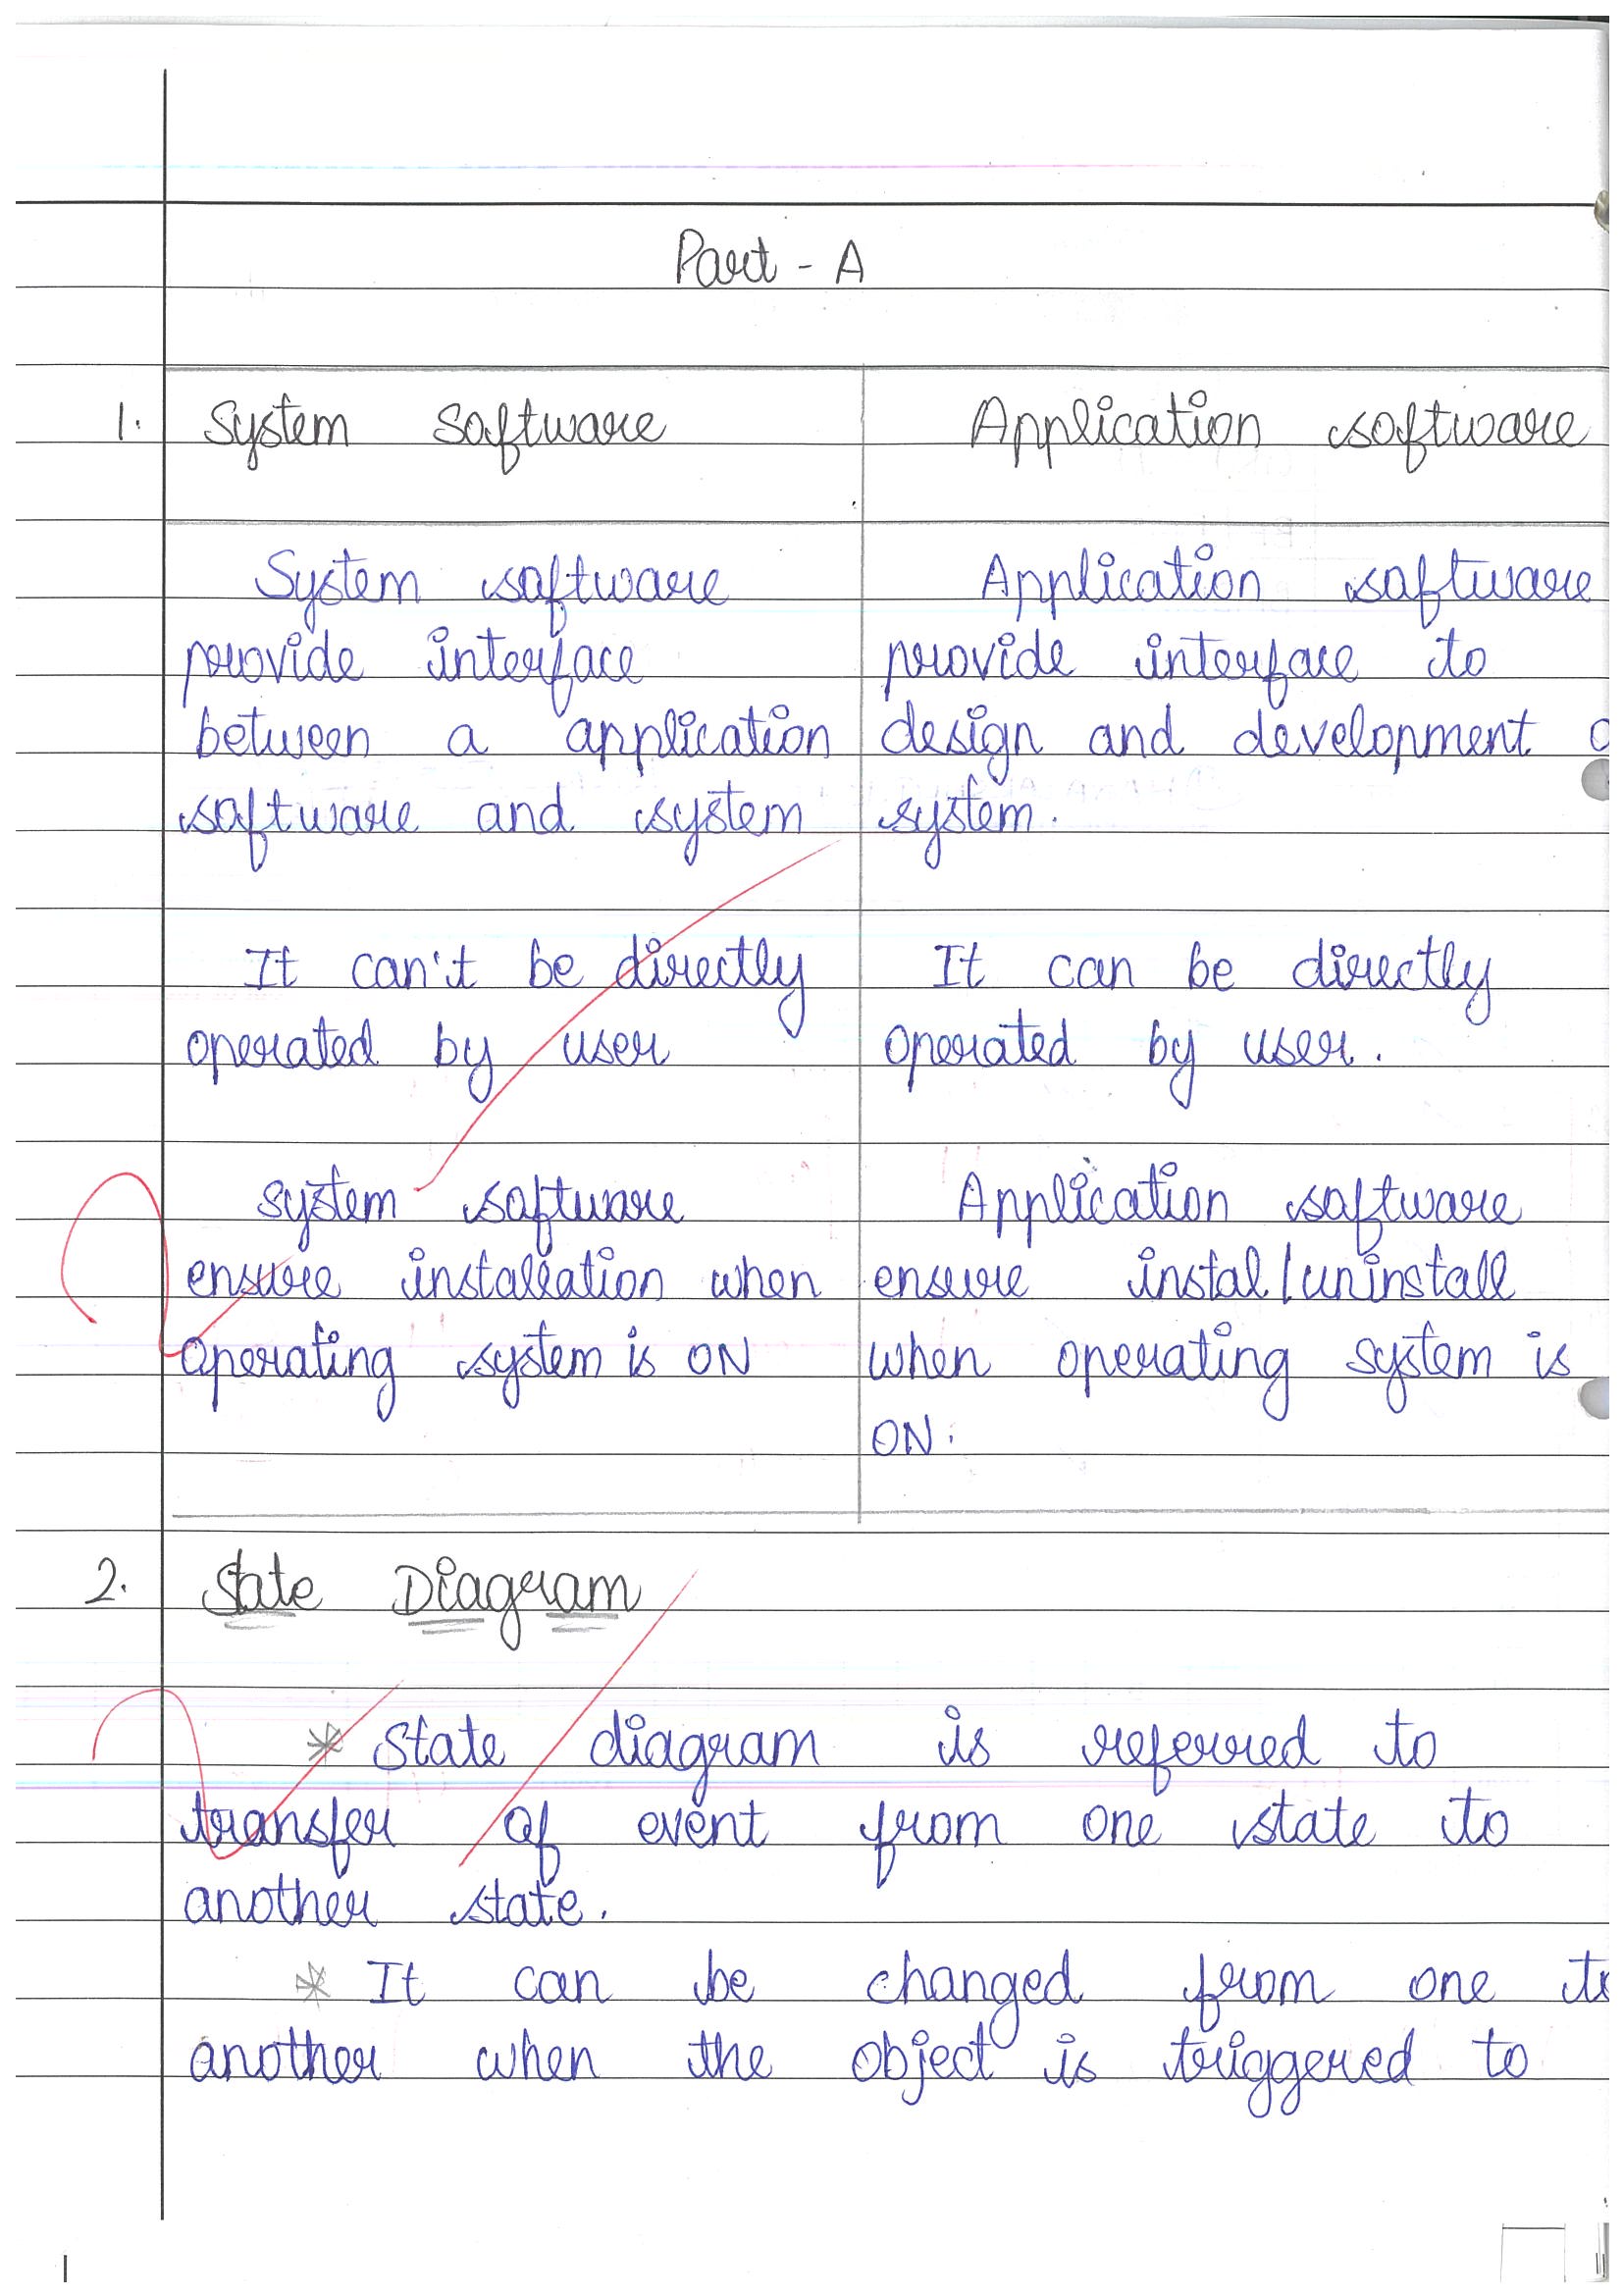 Part - A
1. System Software Application software
System software Application software
provide interface provide interface to
between a application design and development
software and system system.
It can't be directly It can be directly
operated by user operated by user.
System software Application software
ensure installation when ensure instal/uninstall
operating system is ON when operating system is
ON.
2. State Diagram
* State diagram is referred to
transfer of event from one state to
another state.
* It can be changed from one to
another when the object is triggered to